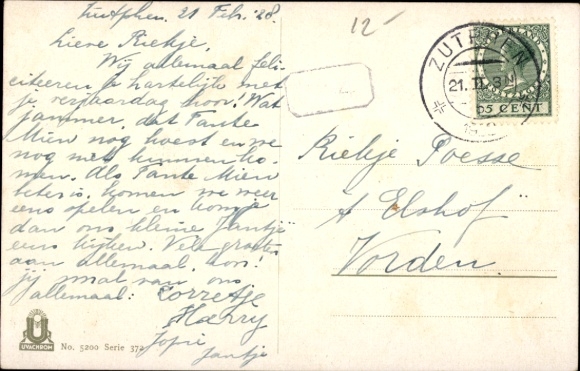 Zutphen, 21 Feb. '28.
Lieve Riekje,
Wij allemaal feli-
citeeren je hartelijk met
je verjaardag hoor! Wat
jammer, dat Tante
Mien nog hoest en we
nog niet kunnen ko-
men. Als Tante Mien
beter is, komen we weer
eens spelen en kom je
dan ons kleine Jantje
eens kijken. Vele groeten
aan allemaal, hoor!
jij van ons
allemaal: Corretje
Harry
Jopie
Jantje
12-
ZUTPHEN
21.II. 3N
5 CENT
Riekje Poesse
't Elshof
Vorden
UVACHROM
No. 5200 Serie 372